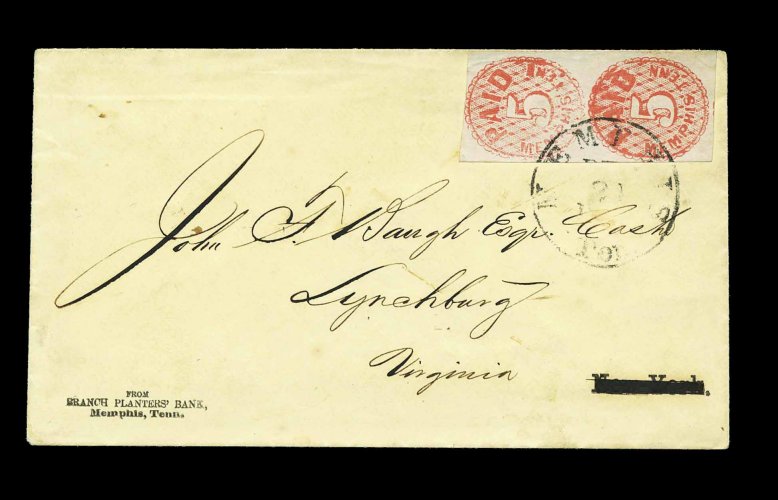 PAID 5 MEMPHIS TENN
PAID 5 MEMPHIS TENN
MEMPHIS
21
John F. Baugh Esqr. Cash
Lynchburg
Virginia
New York.
FROM
BRANCH PLANTERS' BANK,
Memphis, Tenn.